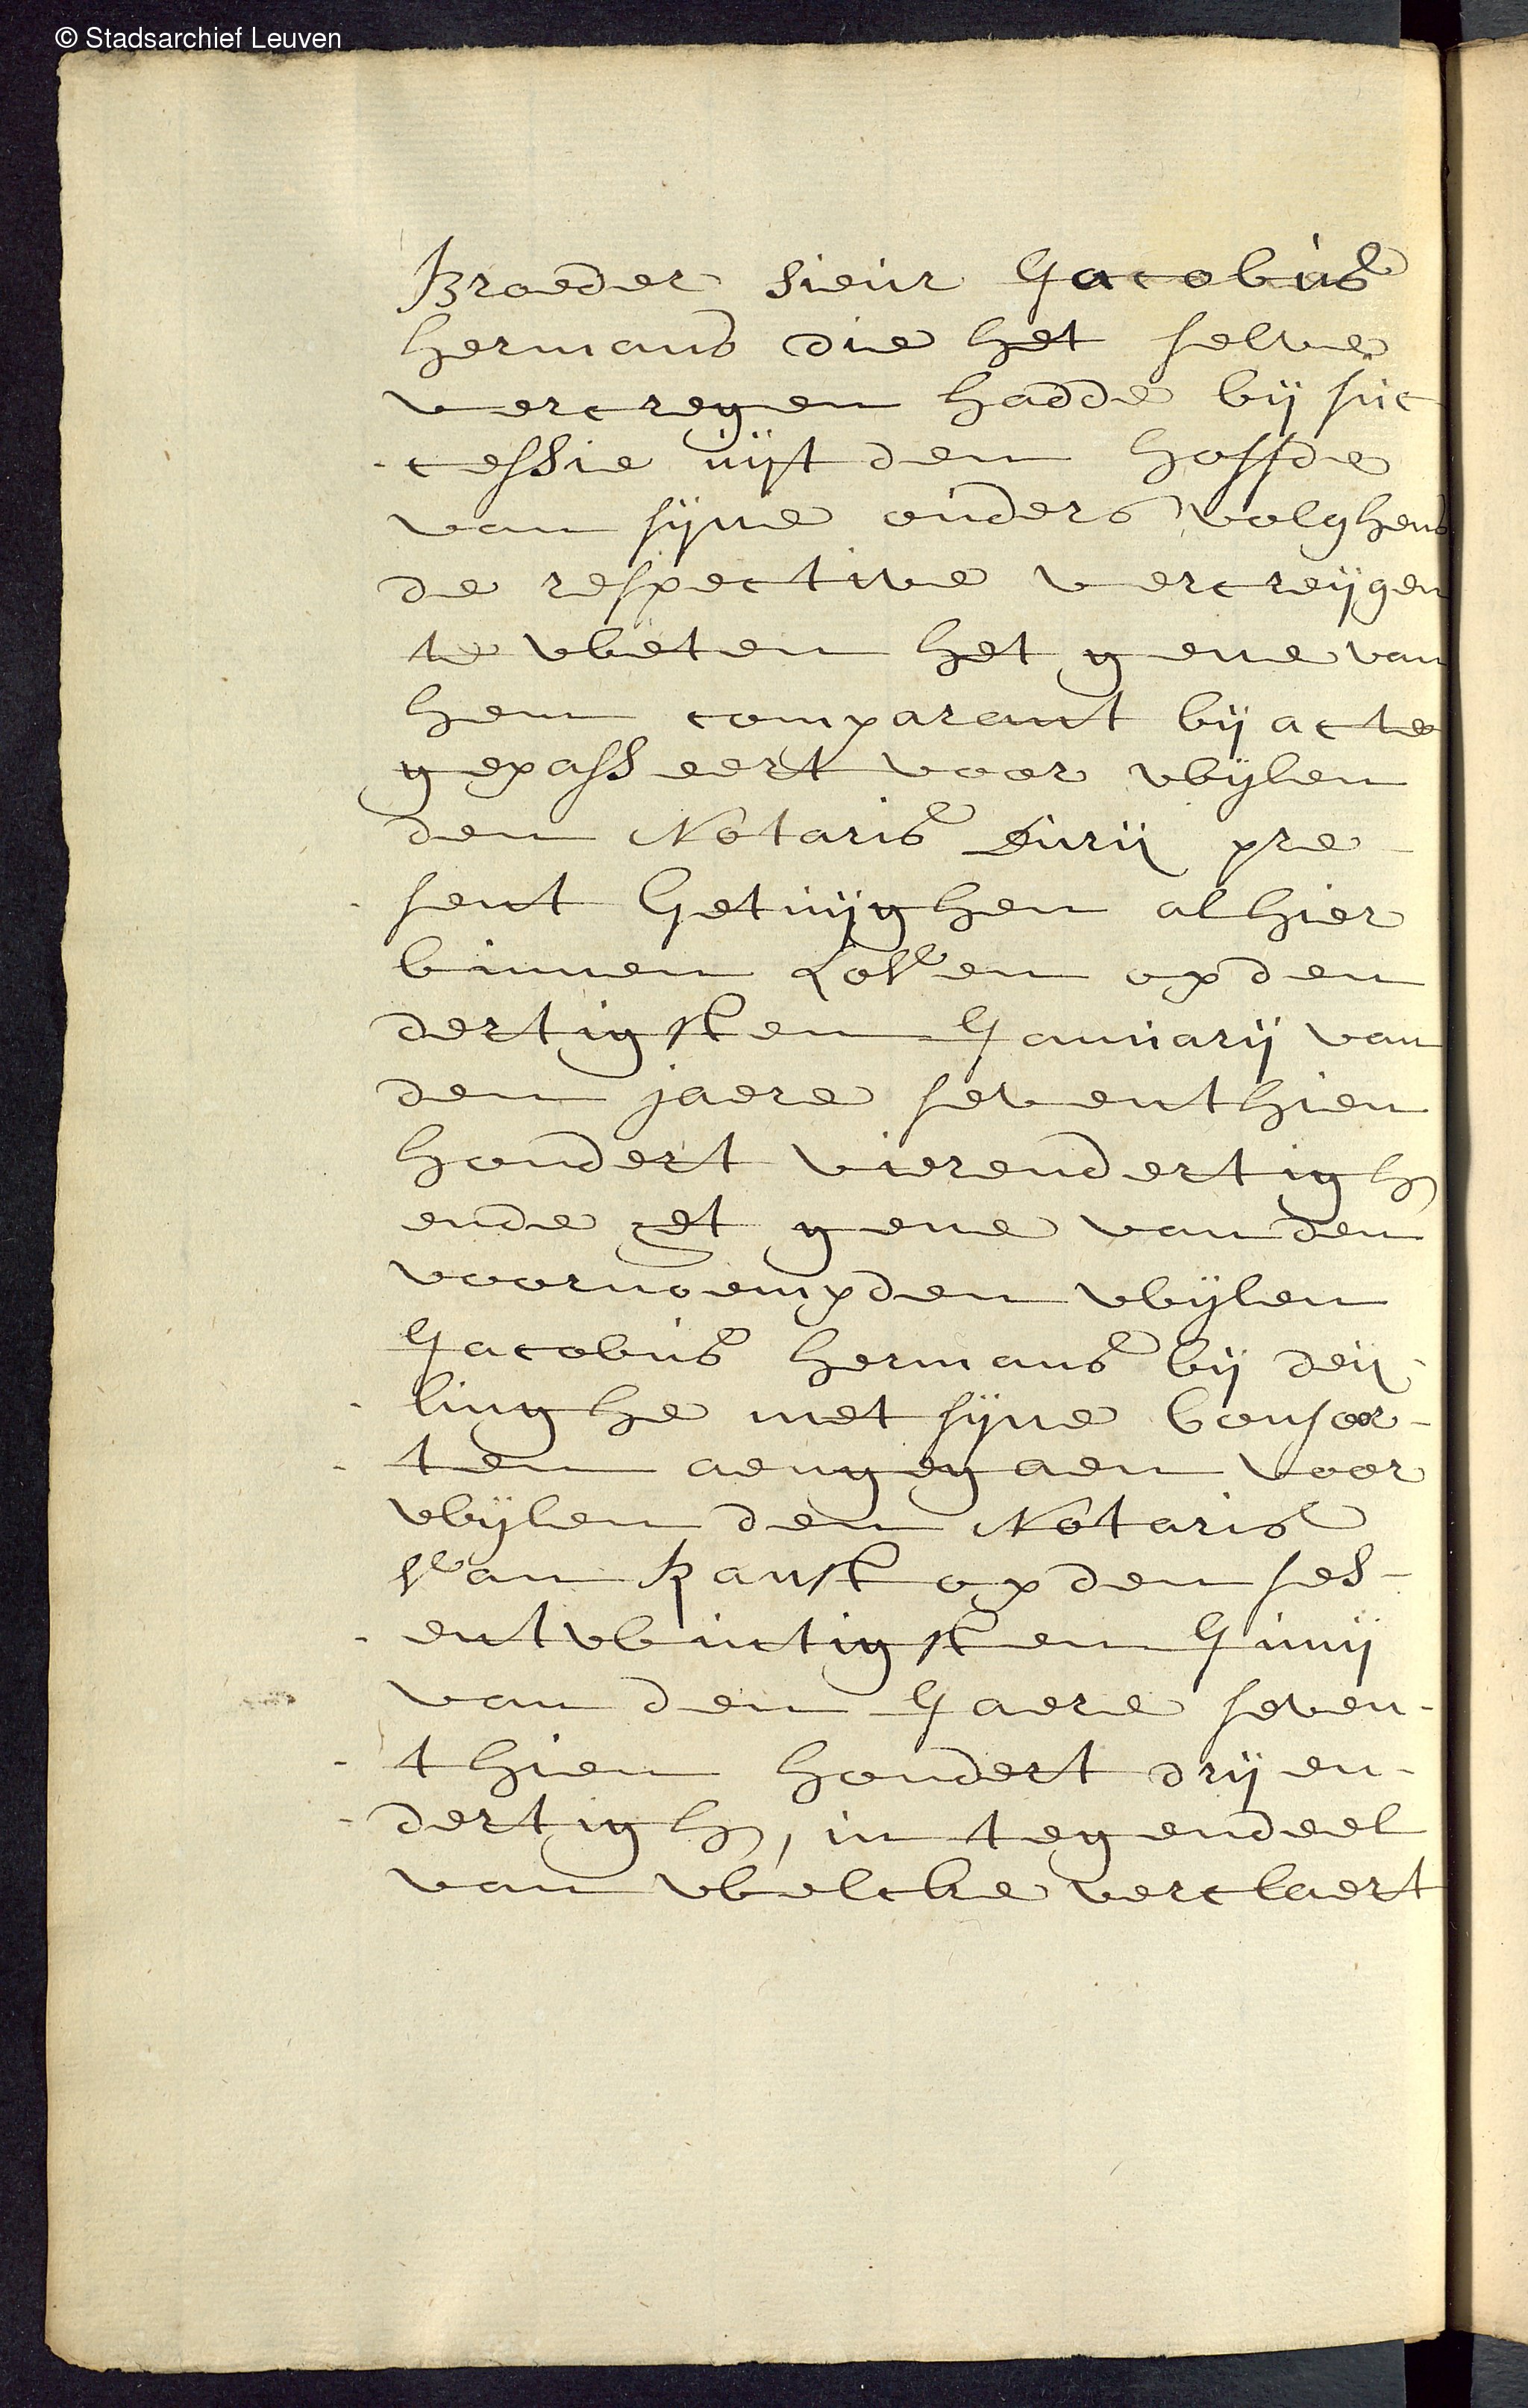 © Stadsarchief Leuven
Broeder sieur Jacobus
hermans die het selve
vercregen hadde bij suc
-cessie uijt den hoffde
van sijne ouders volghens
de respective vercreijgen
te weten het gene van
hem comparant bij acte
gepasseert voor wijlen
den Notaris Durij pre-
-sent Getuijghen alhier
binnen Loven op den
dertigsten Januarij van
den jaere seventhien
hondert vierendertigh
ende et gene van den
voornoempden wijlen
Jacobus hermans bij deij-
-linghe met sijne Consor-
-ten aengegaen voor
wijlen den Notaris
Van Ranst op den ses-
-entwintigsten Junij
van den Jaere seven-
-thien hondert drij en-
-dertigh, in tegendeel
van welcke verclaert